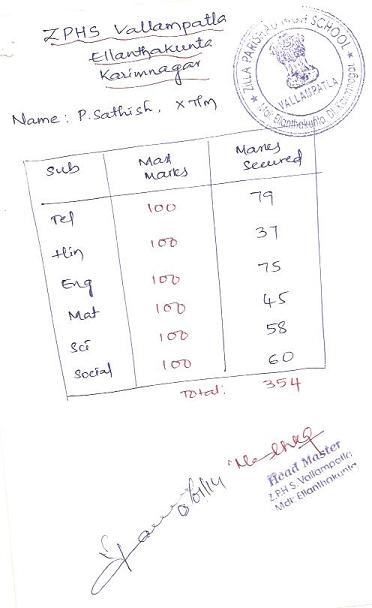 ZPHS Vallampatla
Ellanthakunta
Karimnagar
ZILLA PARISHAD HIGH SCHOOL
VALLAMPATLA
Mdl: Ellanthakunta, Dt. Karimnagar
Name: P. Sathish, X T/m
Sub Max Marks Marks Secured
Tel 100 79
Hin 100 37
Eng 100 75
Mat 100 45
Sci 100 58
Social 100 60
Total: 354
Head Master
Z.P.H.S. Vallampatla
Mdl: Ellanthakunta